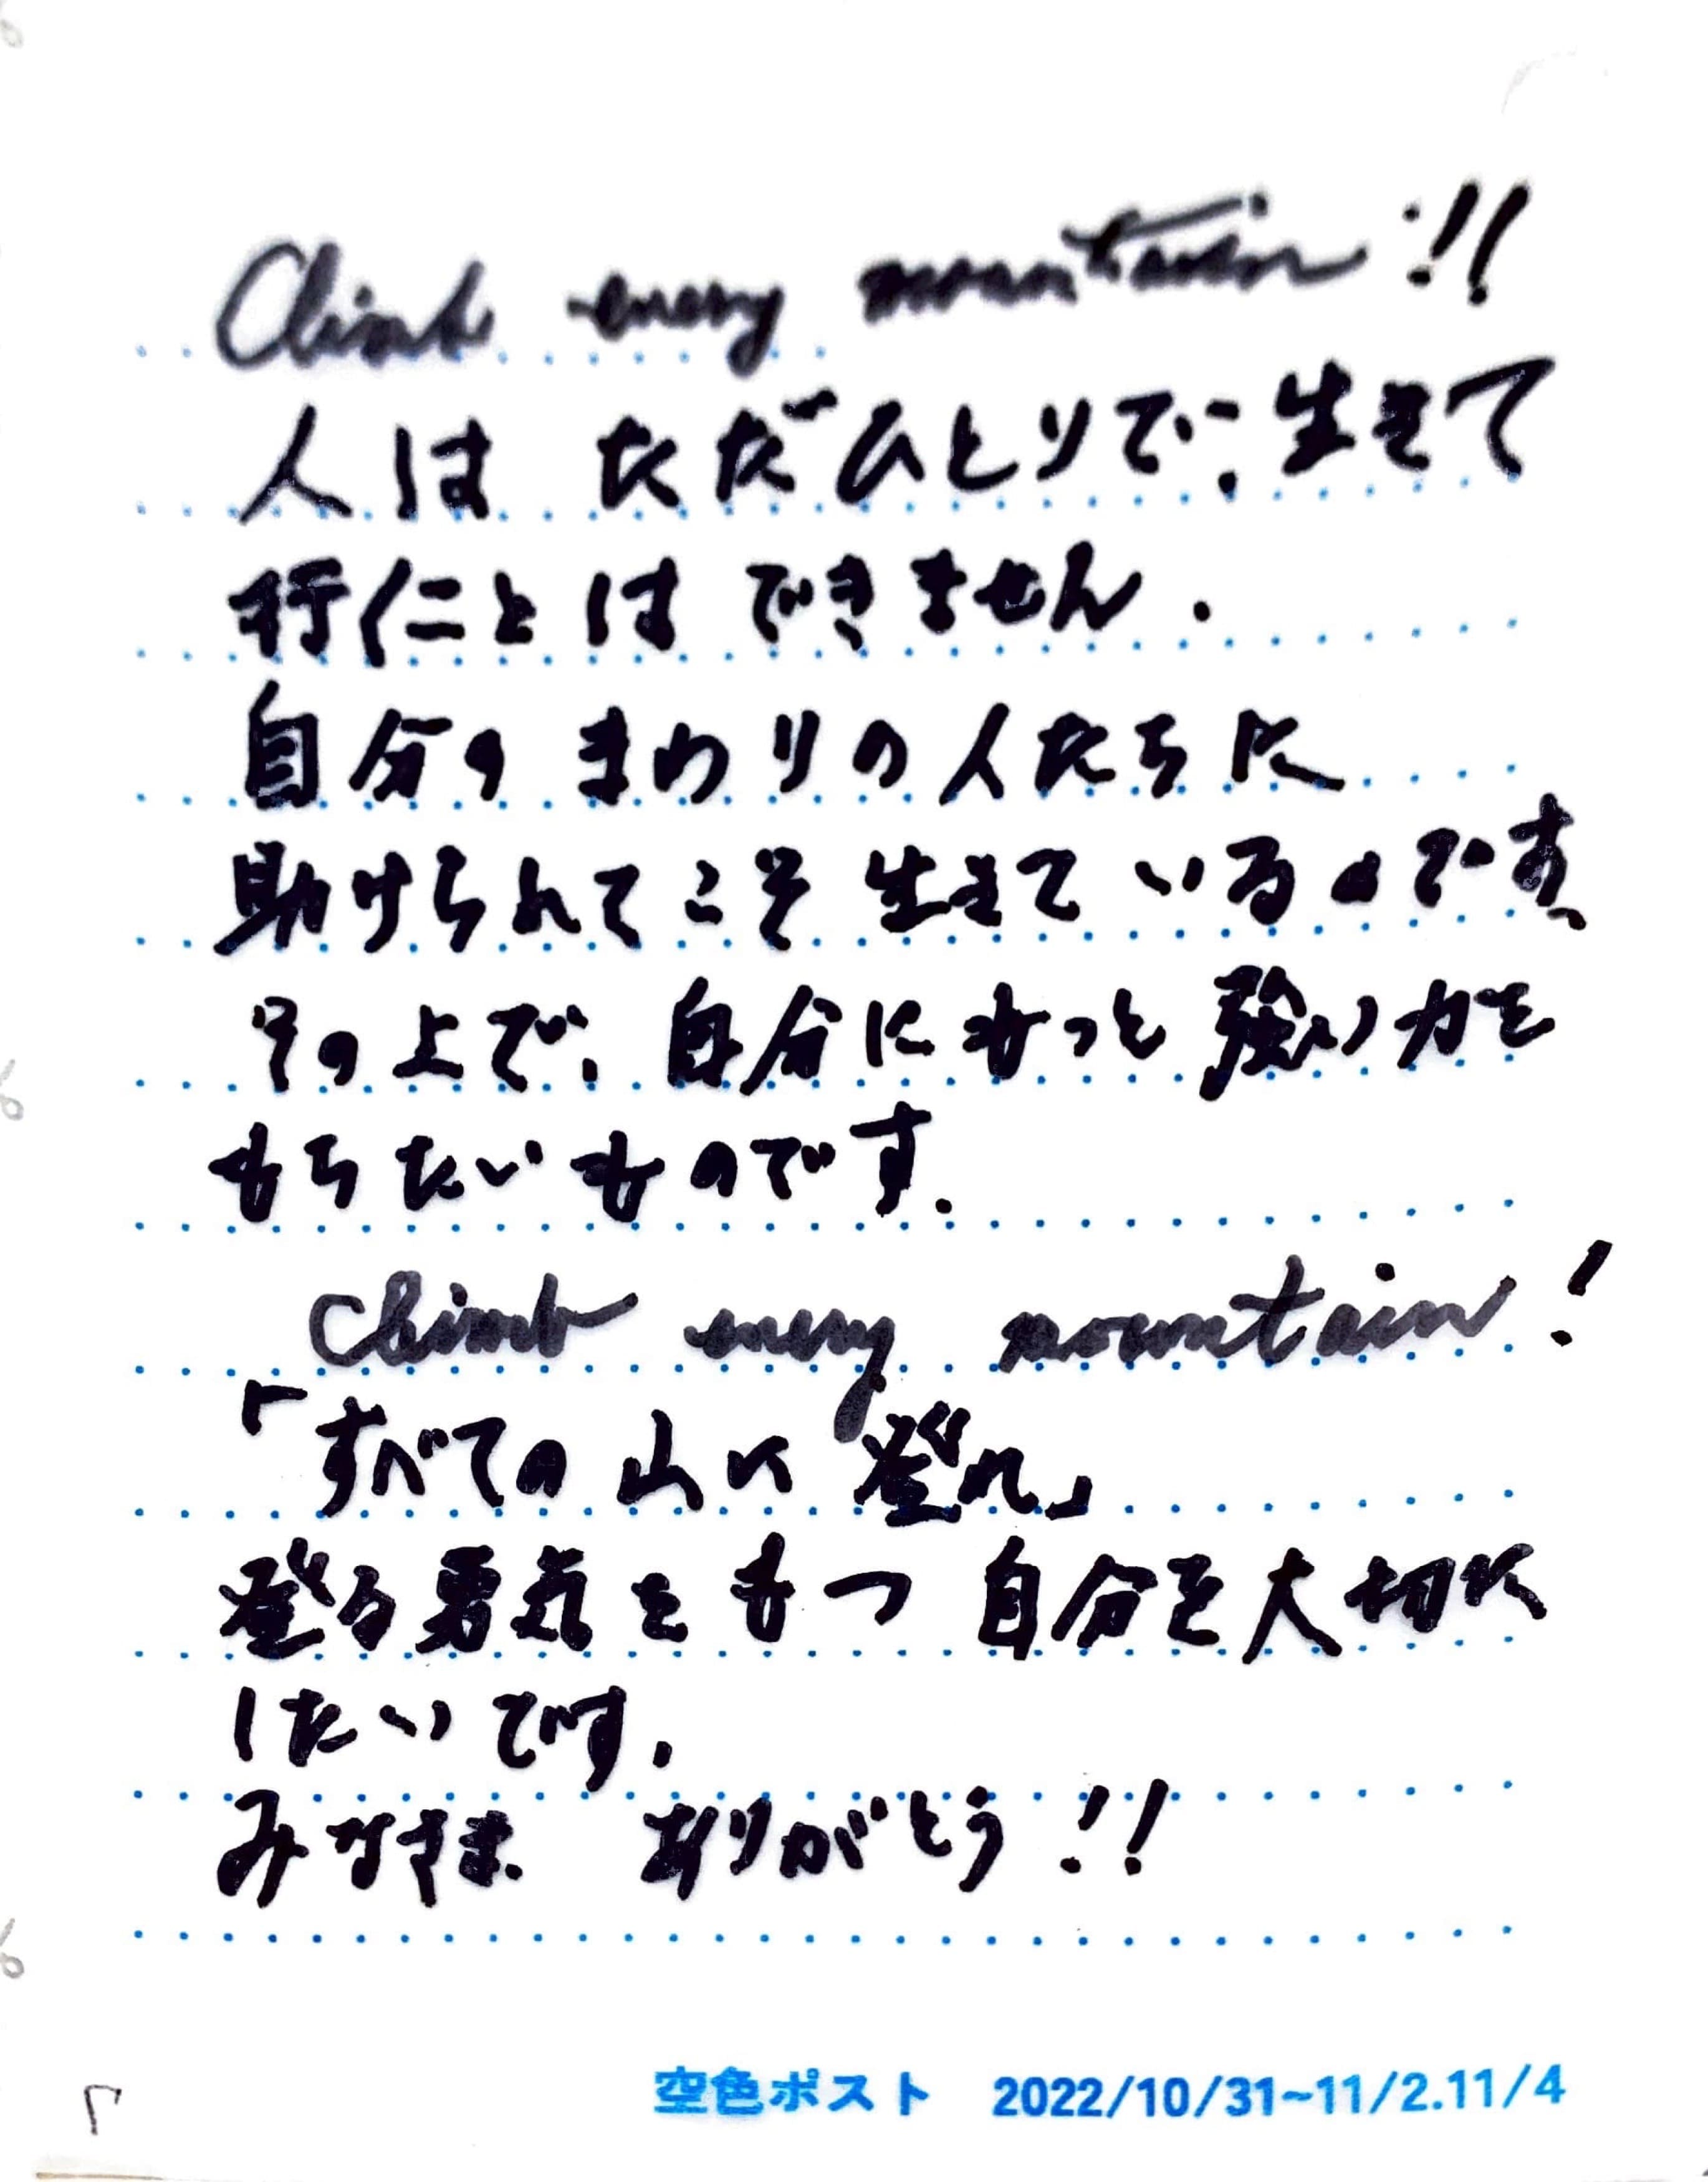 Climb every mountain!!
人は ただひとりで、生きて
行くことは できません.
自分の まわりの人たちに
助けられてこそ 生きているのです、
その上で、自分にもっと強い力を
もちたいものです.
Climb every mountain!
「すべての山に登れ」
登る勇気をもつ自分を大切に
したいです.
みなさま ありがとう!!
空色ポスト 2022/10/31~11/2.11/4